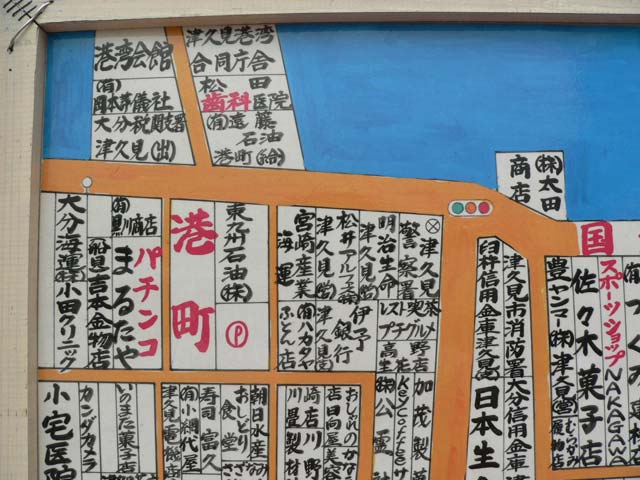 港湾会館
(有)
岡本葬儀社
大分税関署
津久見(出)
津久見港湾
合同庁舎
松田
歯科医院
(有)遠藤
石油
港町(給)
(株)太田
商店
大分海運(株)
小田クリニック
(有)黒川商店
船見吉本金物店
パチンコ
まるたや
港町
東九州石油(株)
P
宮崎産業
海運
(有)ハカタヤ
ふとん店
松井アルプス(株)
津久見(営)
伊予
銀行
明治生命
津久見(営)
警察署
津久見
臼杵信用金庫津久見(支)
日本生
津久見市消防署
大分信用金庫
国
スポーツショップ
NAKAGAWA
佐々木菓子店
豊ヤンマー(株)津久見(営)
むらかみ
履物店
加茂製菓
小宅医院
カンダカメラ
いのまた菓子店
津久見電機店
(有)小網代屋
寿司富久
おしどり
食堂
朝日水産
川畳製材
崎店川野
店日向屋美容
おしゃれのかなう
(株)公霊社